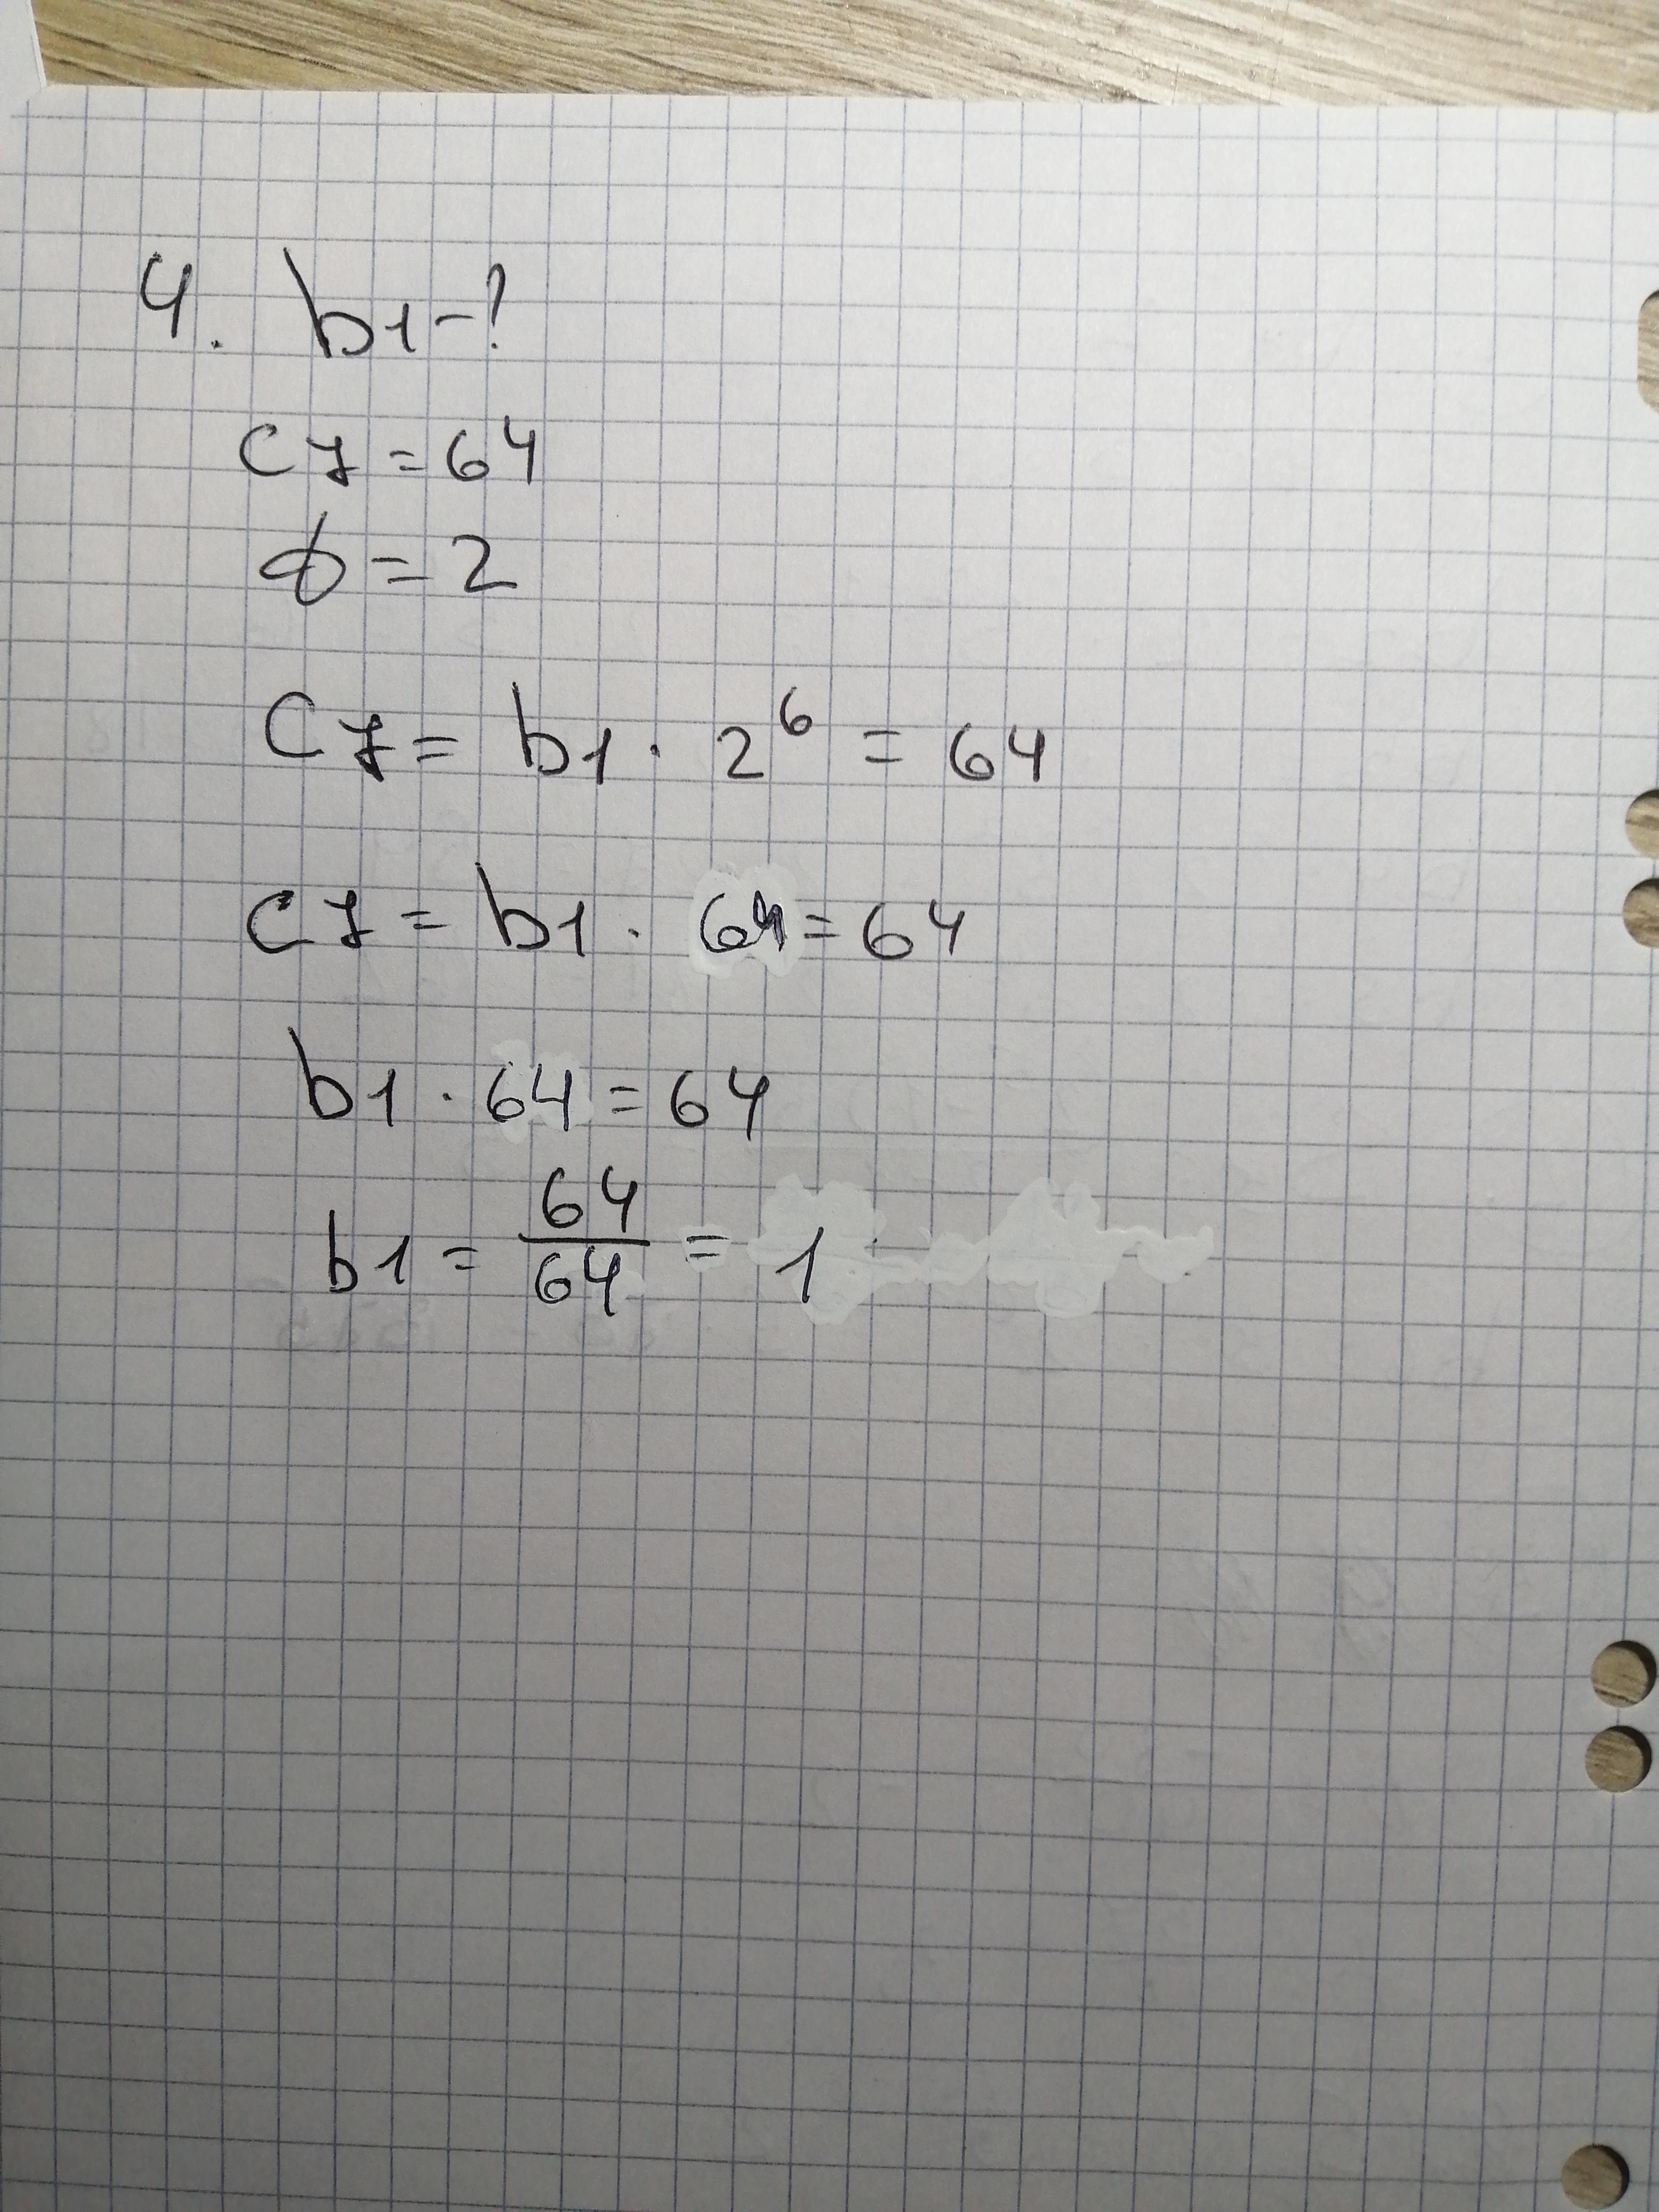 4. b1 - ?
c7 = 64
ф = 2
C7 = b1 · 2⁶ = 64
c7 = b1 · 64 = 64
b1 · 64 = 64
b1 = 64/64 = 1